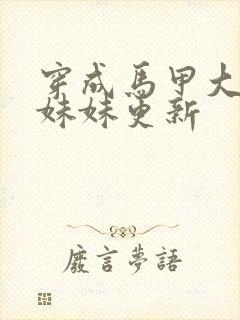 穿成馬甲大
妹妹更新
廢言夢語